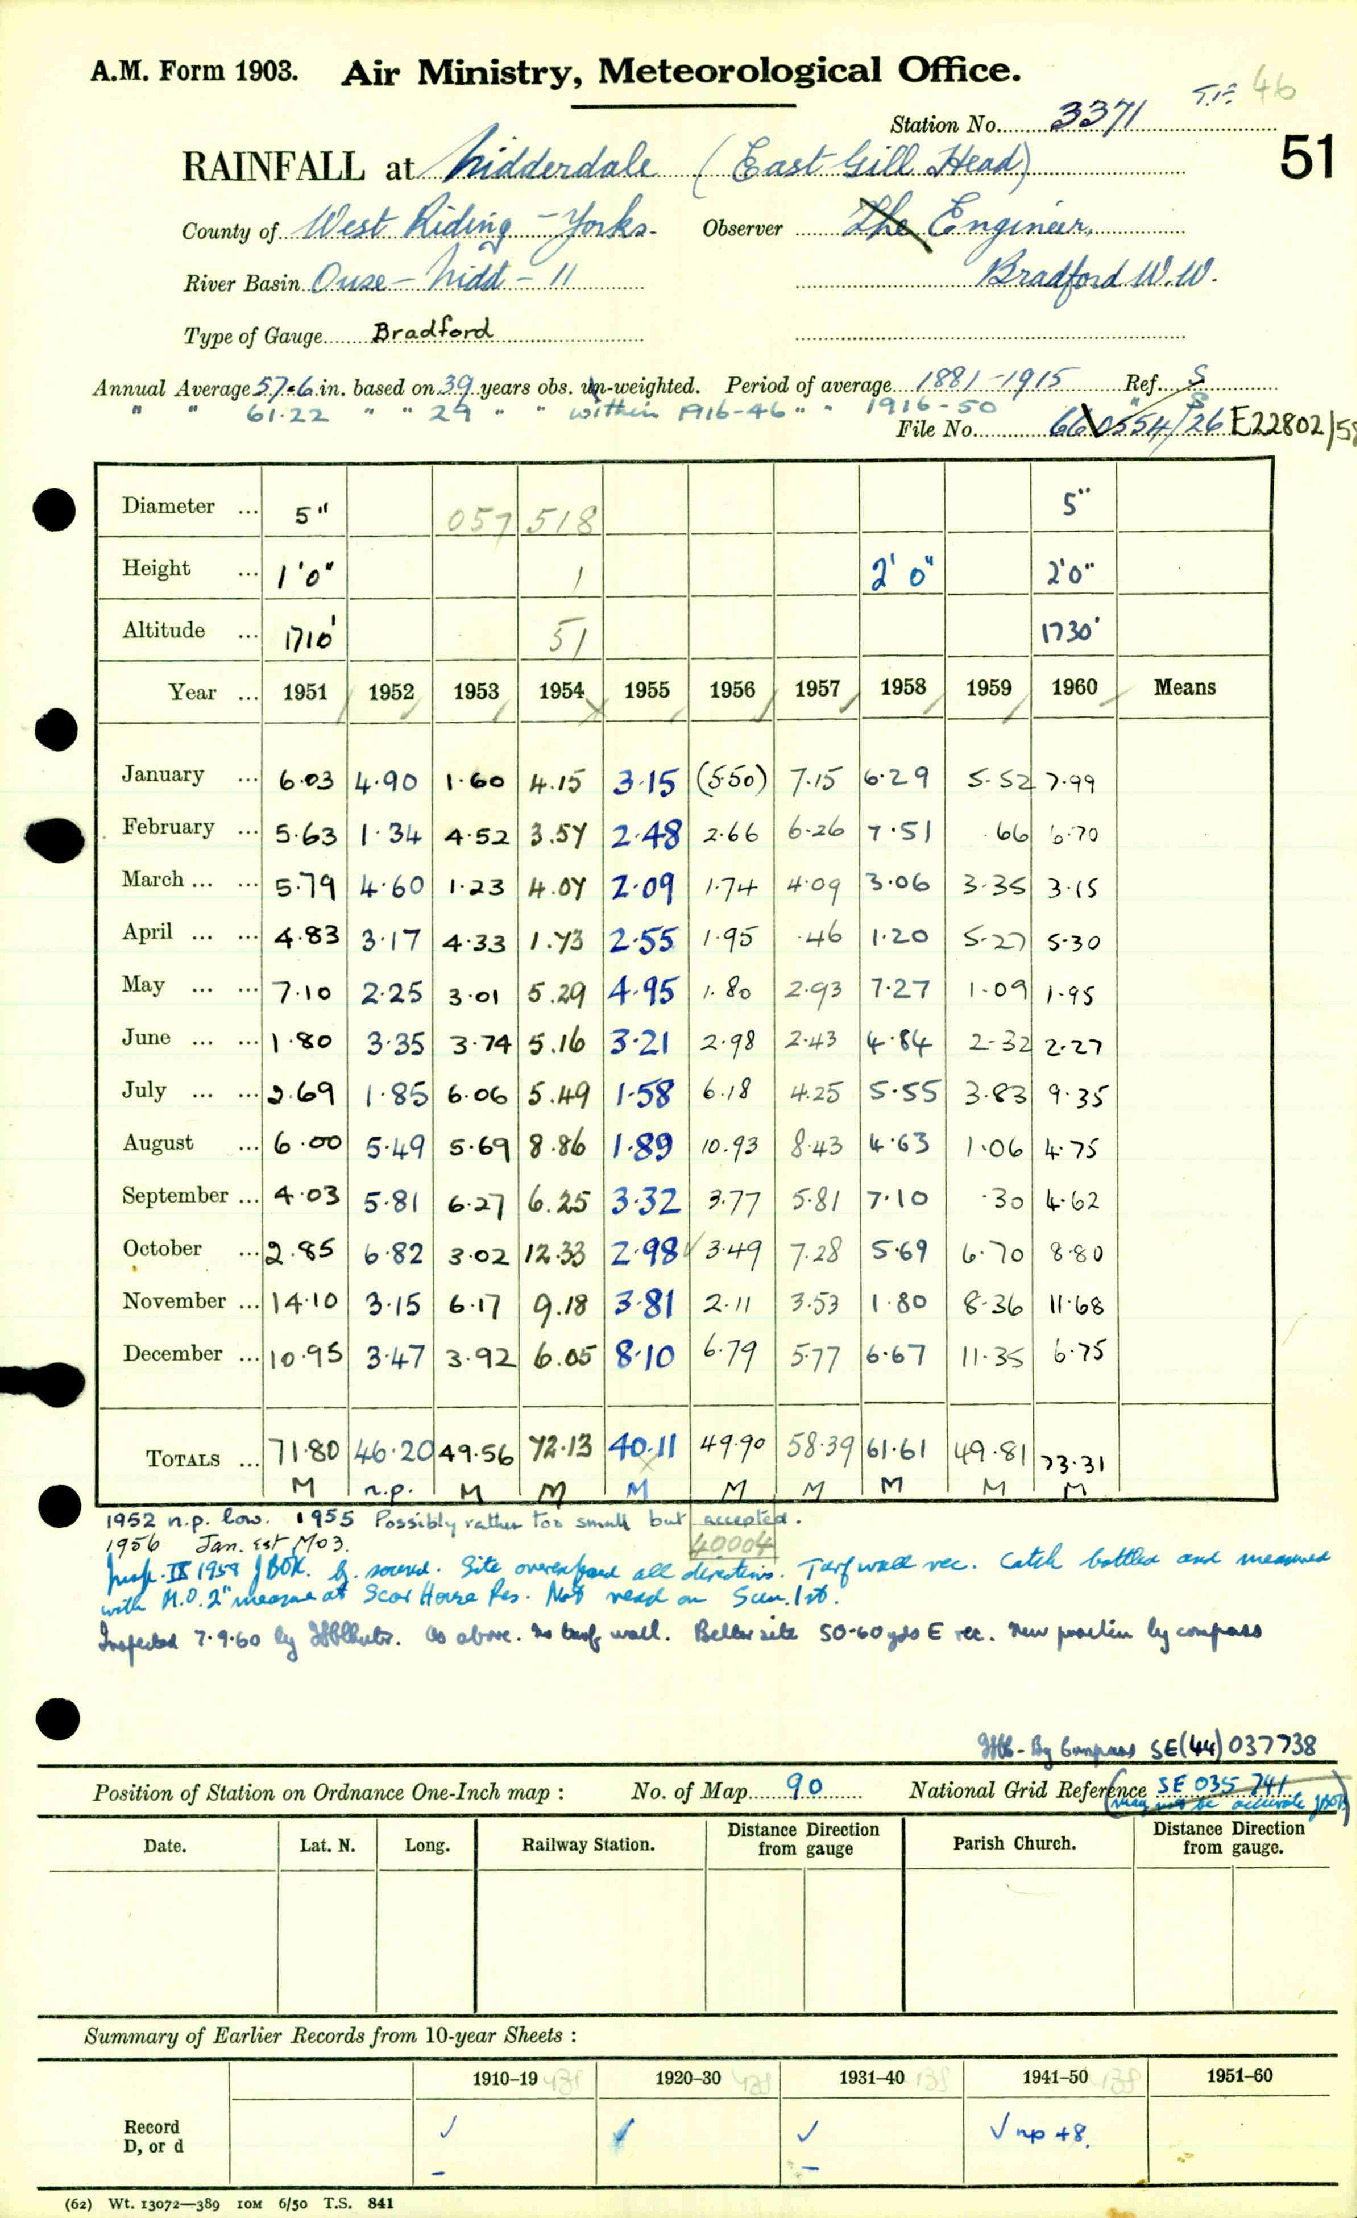 A.M. Form 1903. Air Ministry, Meteorological Office.
46
Station No. 3371
51
RAINFALL at Nidderdale (East Gill Head)
County of West Riding - Yorks. Observer The Engineer,
River Basin Ouse - Nidd - 11 Bradford W.W.
Type of Gauge Bradford
Annual Average 57.6 in. based on 39 years obs. un-weighted. Period of average 1881-1915 Ref. S
" " 61.22 " " 29 " " within 1916-46 " " 1916-50
File No. 660554/26 E22802/58
Diameter ... 5" 057 518 5"
Height ... 1'0" 1 2'0" 2'0"
Altitude ... 1710' 51 1730'
Year ... 1951 1952 1953 1954 1955 1956 1957 1958 1959 1960 Means
January ... 6.03 4.90 1.60 4.15 3.15 (5.50) 7.15 6.29 5.52 7.99
February ... 5.63 1.34 4.52 3.57 2.48 2.66 6.26 7.51 .66 6.70
March ... ... 5.79 4.60 1.23 4.07 2.09 1.74 4.09 3.06 3.35 3.15
April ... ... 4.83 3.17 4.33 1.73 2.55 1.95 .46 1.20 5.27 5.30
May ... ... 7.10 2.25 3.01 5.29 4.95 1.80 2.93 7.27 1.09 1.95
June ... ... 1.80 3.35 3.74 5.16 3.21 2.98 2.43 4.84 2.32 2.27
July ... ... 2.69 1.85 6.06 5.49 1.58 6.18 4.25 5.55 3.83 9.35
August ... 6.00 5.49 5.69 8.86 1.89 10.93 8.43 4.63 1.06 4.75
September ... 4.03 5.81 6.27 6.25 3.32 3.77 5.81 7.10 .30 4.62
October ... 2.85 6.82 3.02 12.33 2.98 3.49 7.28 5.69 6.70 8.80
November ... 14.10 3.15 6.17 9.18 3.81 2.11 3.53 1.80 8.36 11.68
December ... 10.95 3.47 3.92 6.05 8.10 6.79 5.77 6.67 11.35 6.75
TOTALS ... 71.80 46.20 49.56 72.13 40.11 49.90 58.39 61.61 49.81 73.31
M n.p. M M M M M M M M
1952 n.p. low. 1955 Possibly rather too small but accepted.
1956 Jan. est MO3. 40004
Insp. IX 1958 JBOK. g. sound. Site overexposed all directions. Turf wall rec. Catch bottled and measured
with M.O. 2" measure at Scar House Res. Not read on Sun. 1st.
Inspected 7.9.60 by As above. No turf wall. Better site 50-60 yds E rec. New position by compass
By Compass SE(44)037738
Position of Station on Ordnance One-Inch map : No. of Map 90 National Grid Reference SE 035 741
(may not be accurate JBOK)
Date. Lat. N. Long. Railway Station. Distance from Direction gauge Parish Church. Distance from Direction gauge.
Summary of Earlier Records from 10-year Sheets :
1910–19 1920–30 1931–40 1941–50 1951–60
Record
D, or d ✓ ✓ ✓ ✓ np +8.
(62) Wt. 13072—389 10M 6/50 T.S. 841